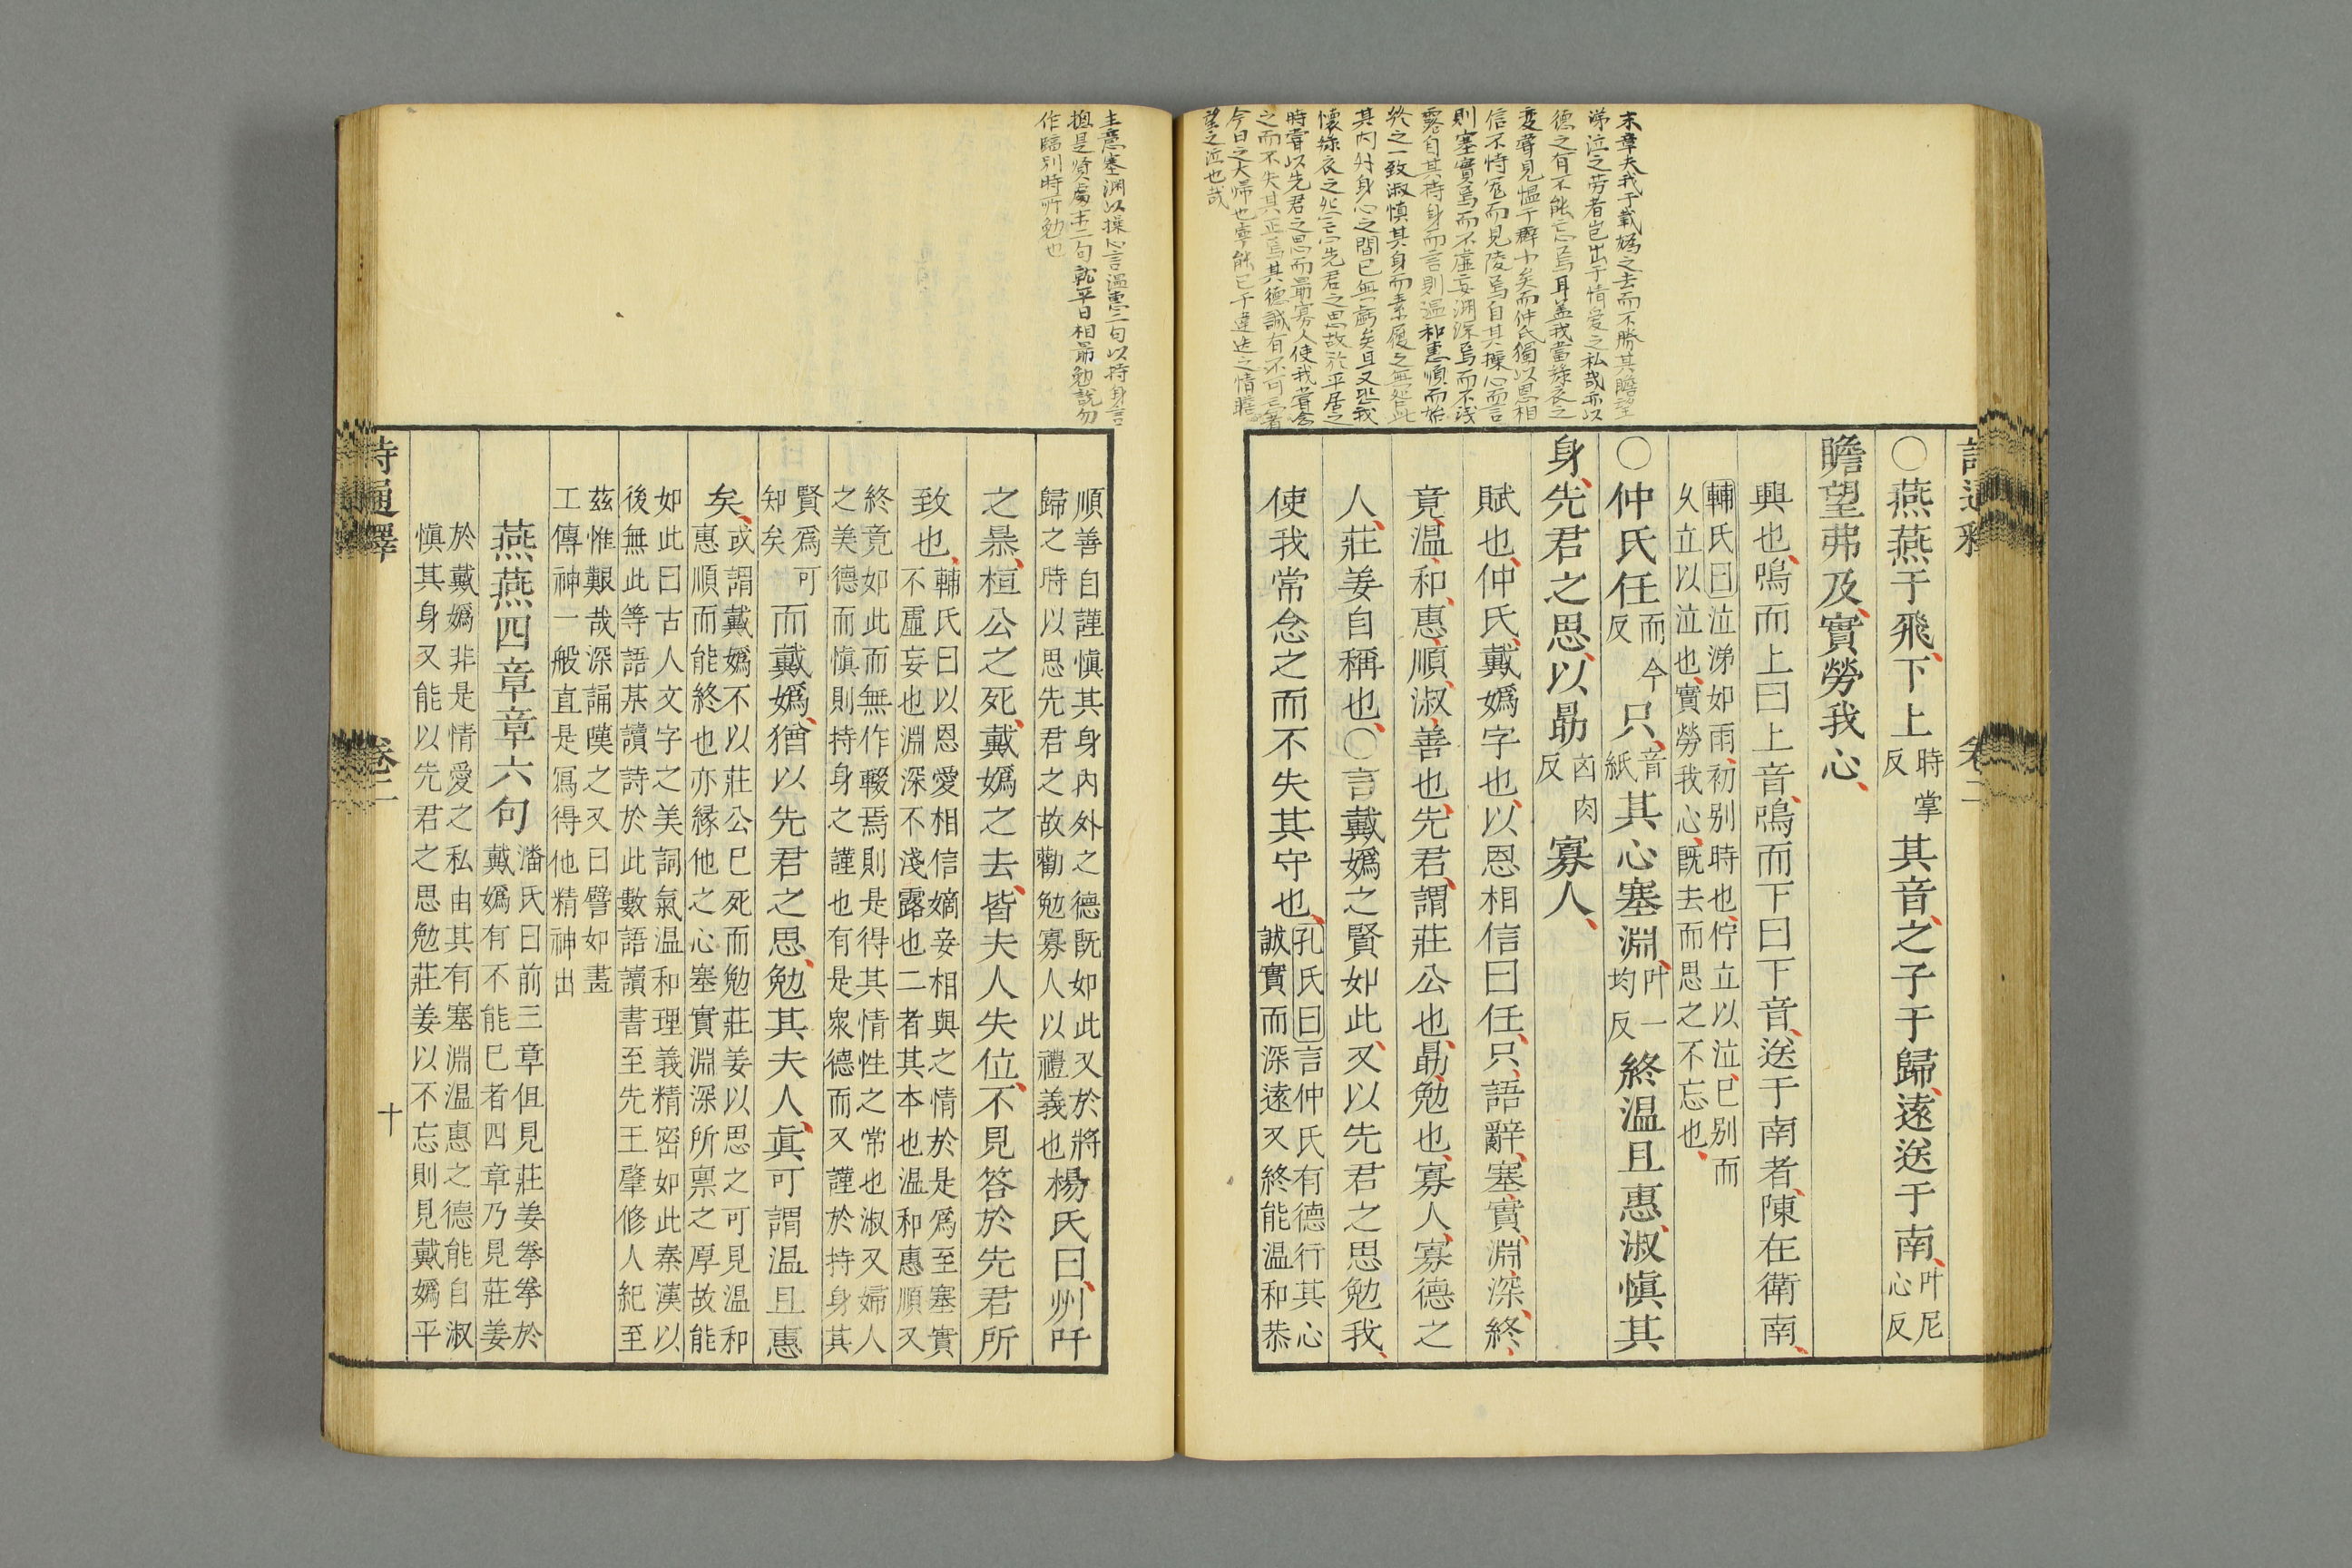 末章夫我于戴嬀之去而不勝其瞻望
涕泣之劳者岂出于情愛之私哉亦以
德之有不能忘焉耳盖我當綠衣之
變嘗見慍于群小矣而仲氏獨以恩相
信不恃寵而見陵焉自其操心而言
則塞實焉而不虛妄淵深焉而不浅
露自其持身而言則温和惠順而始
終之一致淑慎其身而素履之無咎此
其内外身心之間已無虧矣且又恐我
懷綠衣之怨忘先君之思故於平居之
時嘗以先君之思而勗寡人使我嘗念
之而不失其正焉其德誠有不可忘者
今日之大歸也寧能已于違送之情瞻
望之泣也哉
○燕燕于飛下上時掌反其音之子于歸遠送于南叶尼心反
瞻望弗及實勞我心
興也鳴而上曰上音鳴而下曰下音送于南者陳在衛南
輔氏曰泣涕如雨初别時也佇立以泣已别而
久立以泣也實勞我心旣去而思之不忘也
○仲氏任而今反只音紙其心塞淵叶一均反終温且惠淑愼其
身先君之思以勗凶肉反寡人
賦也仲氏戴嬀字也以恩相信曰任只語辭塞實淵深終
竟温和惠順淑善也先君謂莊公也勗勉也寡人寡德之
人莊姜自稱也○言戴嬀之賢如此又以先君之思勉我
使我常念之而不失其守也孔氏曰言仲氏有德行其心
誠實而深遠又終能温和恭
順善自謹愼其身内外之德旣如此又於將
歸之時以思先君之故勸勉寡人以禮義也楊氏曰州吁
之暴桓公之死戴嬀之去皆夫人失位不見答於先君所
致也輔氏曰以恩愛相信嫡妾相與之情於是爲至塞實
不虛妄也淵深不淺露也二者其本也温和惠順又
終竟如此而無作輟焉則是得其情性之常也淑又婦人
之美德而愼則持身之謹也有是衆德而又謹於持身其
賢爲可知矣而戴嬀猶以先君之思勉其夫人眞可謂温且惠
矣或謂戴嬀不以莊公已死而勉莊姜以思之可見温和
惠順而能終也亦緣他之心塞實淵深所禀之厚故能
如此曰古人文字之美詞氣温和理義精密如此秦漢以
後無此等語某讀詩於此數語讀書至先王肇修人紀至
茲惟艱哉深誦嘆之又曰譬如畫
工傳神一般直是冩得他精神出
燕燕四章章六句潘氏曰前三章但見莊姜拳拳於
戴嬀有不能已者四章乃見莊姜
於戴嬀非是情愛之私由其有塞淵温惠之德能自淑
愼其身又能以先君之思勉莊姜以不忘則見戴嬀平
主意塞淵以操心言温惠二句以持身言
揔是賢處末二句就平日相勗勉說勿
作臨別時所勉也
詩通釋 卷二 十